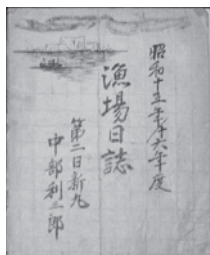 昭和十五年十六年度
漁場日誌
第二日新丸
中部利三郎